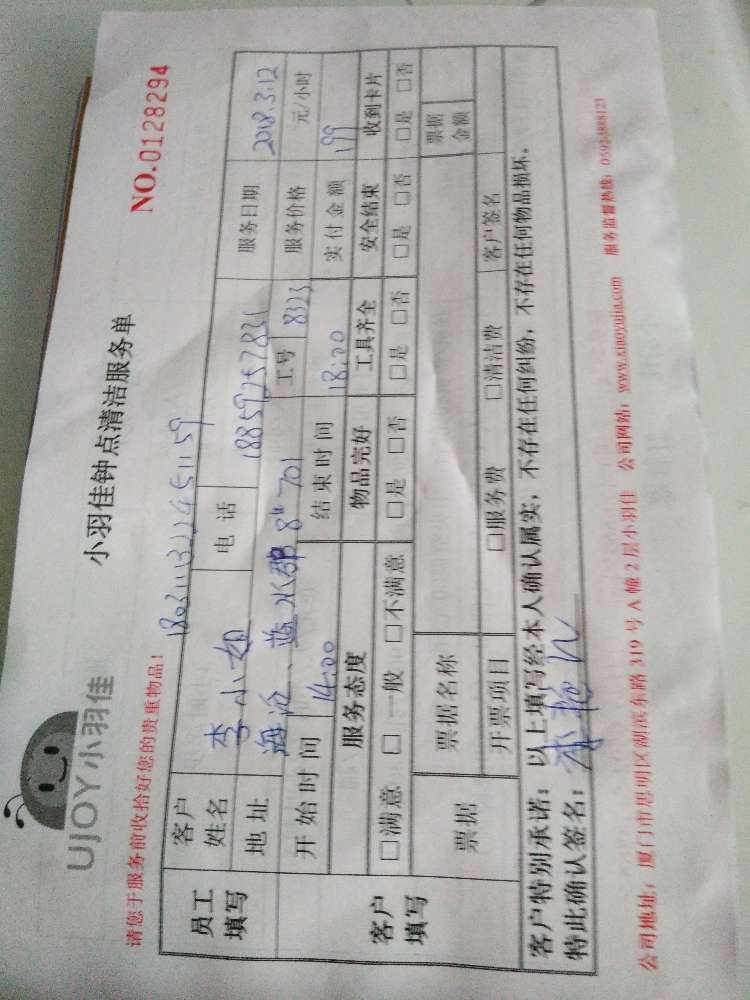 UJOY小羽佳
小羽佳钟点清洁服务单
NO.0128294
请您于服务前收拾好您的贵重物品！
180311132245 1159
员工填写
客户姓名 李小姐 电话 18859257831 服务日期 2018.3.12
地址 海沧、蓝水郡8# 701 工号 8323 服务价格 元/小时
客户填写
开始时间 14:00 结束时间 18:00 实付金额 199
服务态度 物品完好 工具齐全 安全结束 收到卡片
□满意 □一般 □不满意 □是 □否 □是 □否 □是 □否 □是 □否
票据 票据名称 票据金额
开票项目 □服务费 □清洁费 客户签名
客户特别承诺：以上填写经本人确认属实，不存在任何纠纷，不存在任何物品损坏。
特此确认签名：李
公司地址：厦门市思明区湖滨东路319号A幢2层小羽佳 公司网站：www.xiaoyujia.com 服务监督热线：0592-8888123